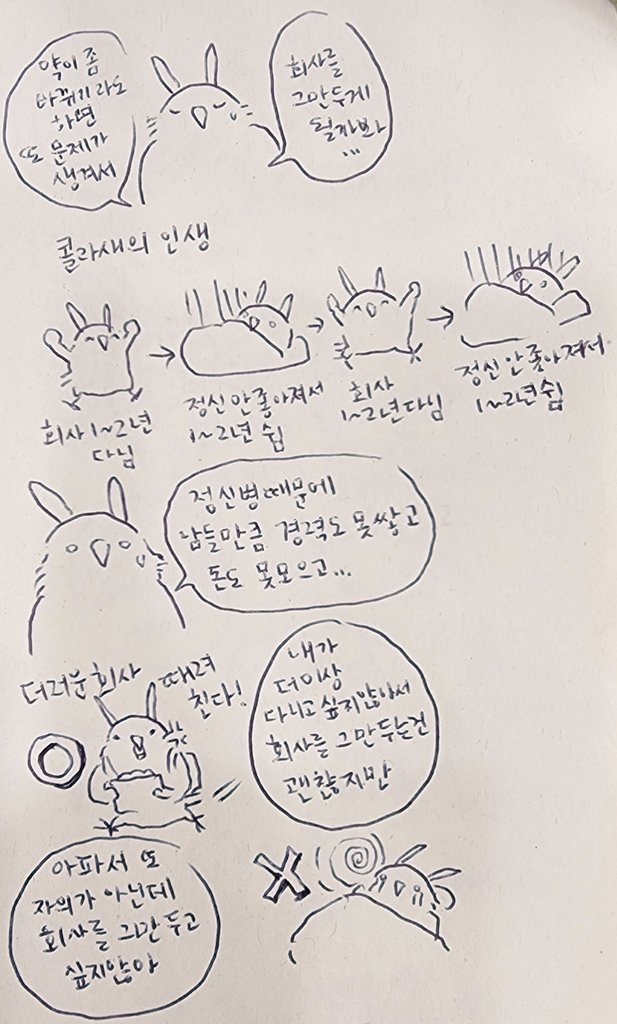 약이 좀
바뀌기라도
하면
또 문제가
생겨서
회사를
그만두게
될까봐
...
콜라새의 인생
회사 1~2년
다님
정신 안좋아져서
1~2년 쉼
회사
1~2년 다님
정신 안 좋아져서
1~2년 쉼
정신병 때문에
남들만큼 경력도 못쌓고
돈도 못모으고...
더러운 회사
때려
친다!
내가
더이상
다니고 싶지않아서
회사를 그만두는건
괜찮지만
아파서 또
자의가 아닌데
회사를 그만두고
싶지않아